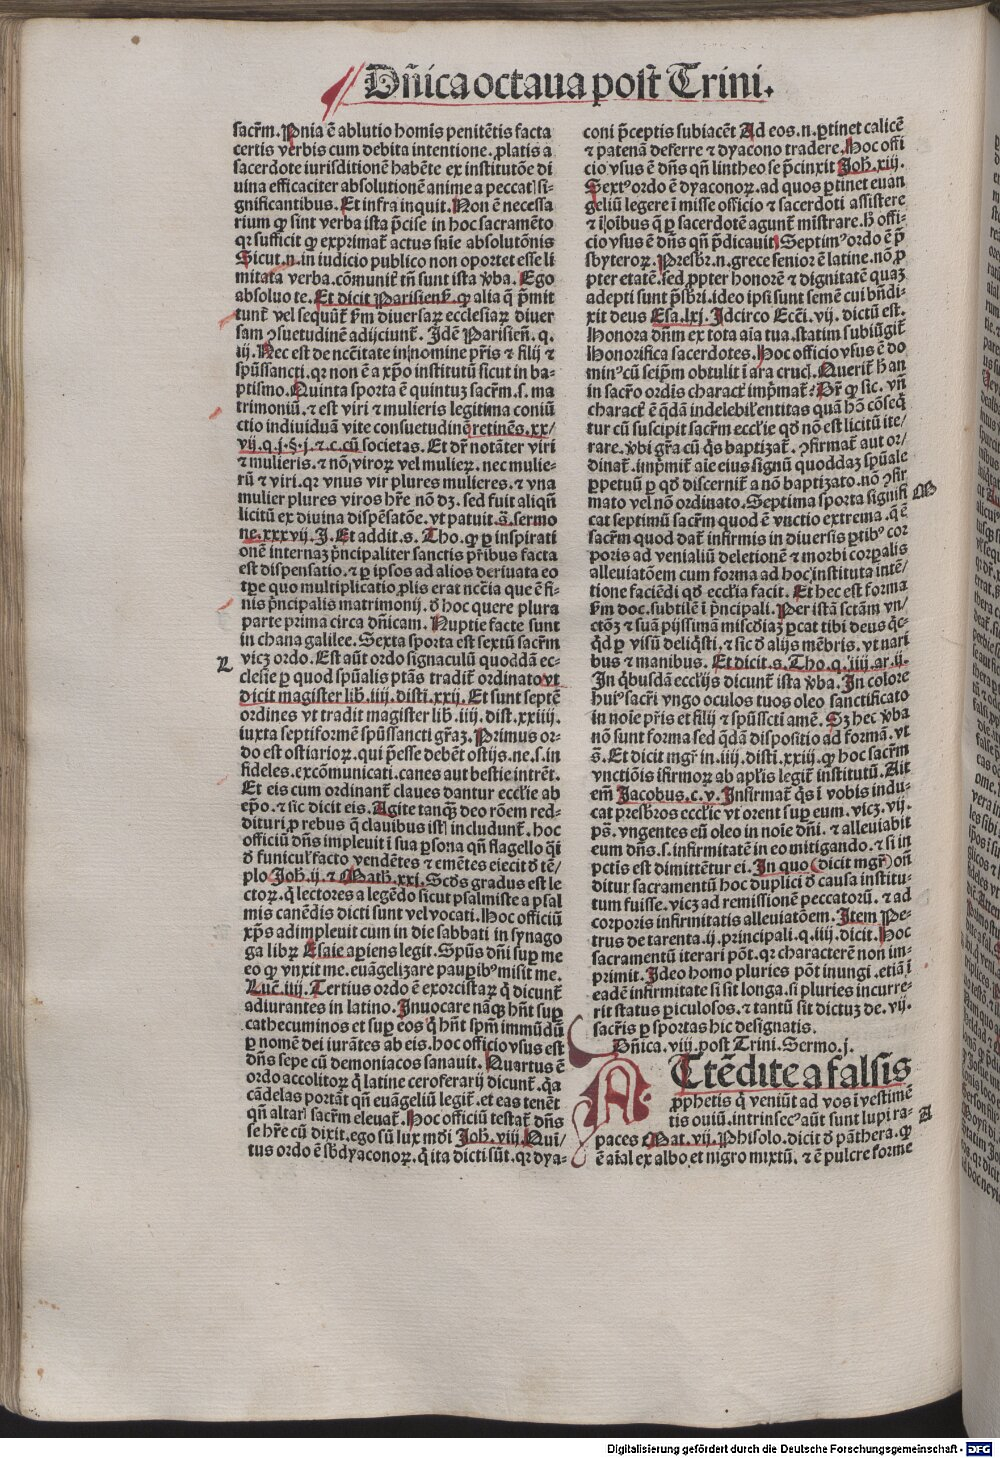 Dñica octaua post̃ Trini.
sacr̃m. Pnia ē ablutio homis penitẽtis facta
certis verbis cum debita intentione. ꝓlatis a
sacerdote iurisditionē habẽte ex institutõe di
uina efficaciter absolutionē anime a peccat| si-
gnificantibus. Et infra inquit. Non ē necessa
rium ꝙ sint verba ista p̃cise in hoc sacramẽto
qꝛ sufficit ꝙ exprimat̃ actus suie absolutõnis
Sicut .n. in iudicio publico non oportet esse li
mitata verba. cõmunit̃ tñ sunt ista v̾ba. Ego
absoluo te. Et dicit Parisieñ. ꝙ alia q̃ p̃mit
tunt̃ vel sequũt̃ ẞm diuersaꝝ ecclesiaꝝ diuer
sam ꝯsuetudinē adijciunt̃. Idē Parisieñ. q.
iij. Nec est de ncc̃itate in nomine pr̃is ⁊ filij ⁊
sp̃ussancti. qꝛ non ē a xp̃o institutũ sicut in ba-
ptismo. Quinta sporta ē quintuꝫ sacr̃m .s. ma
trimoniũ. ⁊ est viri ⁊ mulieris legitima coniũ
ctio indiuiduã vite consuetudinē retinẽs. xx/
vij. q. j. §. j. ⁊ .c. cũ societas. Et dr̃ notãter viri
⁊ mulieris. ⁊ nõ viroꝝ vel mulieꝝ. nec mulie-
rũ ⁊ viri. qꝛ vnus vir plures mulieres. ⁊ vna
mulier plures viros hr̃e nõ dꝫ. sed fuit aliqñ
licitũ ex diuina dispẽsatõe. vt patuit .s̃. sermo
ne. xxxvij. J. Et addit .s. Tho. ꝙ ꝑ inspirati
onē internaꝫ p̃ncipaliter sanctis pr̃ibus facta
est dispensatio. ⁊ ꝑ ipsos ad alios deriuata eo
tp̃e quo multiplicatio ꝓlis erat ncc̃ia que ē fi-
nis p̃ncipalis matrimonij. d̾ hoc quere plura
parte prima circa dñicam. Nuptie facte sunt
in chana galilee. Sexta sporta est sextũ sacr̃m
L
vicꝫ ordo. Est aũt ordo signaculũ quoddã ec-
clesie ꝑ quod sp̃ualis ptãs tradit̃ ordinato vt
dicit magister lib̃. iiij. disti. xxij. Et sunt septē
ordines vt tradit magister lib̃. iiij. dist. xxiiij.
iuxta septiformē sp̃ussancti gr̃aꝫ. Primus or-
do est ostiarioꝝ. qui p̃esse debẽt ostijs. ne .s. in
fideles. excõmunicati. canes aut bestie intrẽt.
Et eis cum ordinant̃ claues dantur eccl̃ie ab
ep̃o. ⁊ sic dicit eis. Agite tanqꝫ deo rõem red-
dituri ꝓ rebus q̃ clauibus ist| includunt̃. hoc
officiũ dñs impleuit ĩ sua ꝑsona qñ flagello q̃i
d̾ funicul̃ facto vendẽtes ⁊ emẽtes eiecit d̾ tẽ/
plo Joh̃. ij. ⁊ Math̃. xxj. Scd̾s gradus est le
ctoꝝ. q̃ lectores a legẽdo sicut psalmiste a psal
mis canẽdis dicti sunt vel vocati. Hoc officiũ
xp̃s adimpleuit cum in die sabbati in synago
ga libꝝ Esaie apiens legit. Sp̃us dñi suꝑ me
eo ꝙ vnxit me. euãgelizare pauꝑib⁹ misit me.
Luc̃. iiij. Tertius ordo ē exorcistaꝝ q̃ dicunt̃
adiurantes in latino. Inuocare nãqꝫ hñt suꝑ
cathecuminos et suꝑ eos q̃ hñt sp̃m immũdũ
ꝑ nomē dei iurãtes ab eis. hoc officio vsus est
dñs sepe cũ demoniacos sanauit. Quartus ē
ordo accolitoꝝ q̃ latine ceroferarij dicunt̃. q̃a
cãdelas portãt qñ euãgeliũ legit̃. et eas tenẽt
qñ altar| sacr̃m eleuat̃. Hoc officiũ testat̃ dñs
se hr̃e cũ dixit. ego sũ lux mũdi Joh̃. viij. Qui/
tus ordo ē sb̃dyaconoꝝ. q̃ ita dicti sũt. qꝛ dya-
coni p̃ceptis subiacẽt Ad eos .n. ꝑtinet calicē
⁊ patenã deferre ⁊ dyacono tradere. Hoc offi
cio vsus ē dñs qñ lintheo se p̃cinxit Joh̃. xiij.
Sext⁹ ordo ē dyaconoꝝ. ad quos ꝑtinet euan
geliũ legere ĩ misse officio ⁊ sacerdoti assistere
⁊ ĩ oĩbus q̃ ꝑ sacerdotē agunt̃ mĩstrare. h̾ offi-
cio vsus ē dñs qñ p̃dicauit. Septim⁹ ordo ē p̃
sbyteroꝝ. Presbr̃ .n. grece senior ē latine. nõ ꝓ
pter etatē. sed ꝓpter honorē ⁊ dignitatē quaꝫ
adepti sunt p̃sbr̃i. ideo ipsi sunt semē cui bñdi-
xit deus Esa. lxj. Idcirco Eccĩ. vij. dictũ est.
Honora dñm ex tota aĩa tua. statim subiũgit̃
Honorifica sacerdotes. Hoc officio vsus ē do
min⁹ cũ seip̃m obtulit ĩ ara cruc|. Querit̃ h̾ an
in sacr̃o ordĩs charact̃ imp̃mat̃. Pr̃ ꝙ sic. vñ
charact̃ ē q̃dã indelebil̃ entitas quã hõ cõseq̃
tur cũ suscipit sacr̃m eccl̃ie qd̾ nõ est licitũ ite/
rare. v̾bi gr̃a cũ q̃s baptizat̃. ꝯfirmat̃ aut or/
dinat̃. imp̃mit̃ aĩe eius signũ quoddaꝫ sp̃uale
ꝑpetuũ ꝑ qd̾ discernit̃ a nõ baptizato. nõ ꝯfir
mato vel nõ ordinato. Septima sporta signifi
M
cat septimũ sacr̃m quod ē vnctio extrema. q̃ ē
sacr̃m quod dat̃ infirmis in diuersis ꝑtib⁹ cor
poris ad venialiũ deletionē ⁊ morbi corꝑalis
alleuiatõem cum forma ad hoc instituta intẽ/
tione faciẽdi qd̾ eccl̃ia facit. Et hec est forma
ẞm doc. subtilē ĩ p̃ncipali. Per istã sctãm vn/
ctõꝫ ⁊ suã pijssimã miscd̾iaꝫ ꝑcat tibi deus q̃c-
q̃d ꝑ visũ deliq̃sti. ⁊ sic d̾ alijs mẽbris. vt nari
bus ⁊ manibus. Et dicit .s. Tho. q. iiij. ar. ij.
In q̃busdã eccl̃ijs dicunt̃ ista v̾ba. In colore
hui⁹ sacr̃i vngo oculos tuos oleo sanctificato
in noĩe pr̃is et filij ⁊ sp̃ussc̃ti amē. Sꝫ hec v̾ba
nõ sunt forma sed q̃dã dispositio ad formã. vt
s̃. Et dicit mgr̃ in. iiij. disti. xxiij. ꝙ hoc sacr̃m
vnctiõis ĩfirmoꝝ ab apl̃is legit̃ institutũ. Ait
em̃ Jacobus. c. v. Infirmat̃ q̃s ĩ vobis indu-
cat presbr̃os eccl̃ie vt orent suꝑ eum. vicꝫ. vij.
ps̃. vngentes eũ oleo in noĩe dñi. ⁊ alleuiabit
eum dñs .s. infirmitatē in eo mitigando. ⁊ si in
pctĩs est dimittẽtur ei. In quo (dicit mgr̃) oñ
ditur sacramentũ hoc duplici d̾ causa institu-
tum fuisse. vicꝫ ad remissionē peccatorũ. ⁊ ad
corporis infirmitatis alleuiatõem. Item Pe-
trus de tarenta. ij. principali. q. iiij. dicit. Hoc
sacramentũ iterari põt. qꝛ characterē non im-
primit. Ideo homo pluries põt inungi. etiã ĩ
eadē infirmitate si sit longa. si pluries incurre-
rit status ꝑiculosos. ⁊ tantũ sit dictuꝫ de. vij.
sacr̃is ꝑ sportas hic designatis.
Dñica. viij. post Trini. Sermo. j.
Attẽdite a falsis
ꝓphetis q̃ veniũt ad vos ĩ vestimẽ
tis ouiũ. intrinsec⁹ aũt sunt lupi ra-
A
paces Mat. vij. Phisolo. dicit d̾ pãthera. ꝙ
ē aĩal ex albo et nigro mixtũ. ⁊ ē pulcre forme
Digitalisierung gefördert durch die Deutsche Forschungsgemeinschaft - DFG